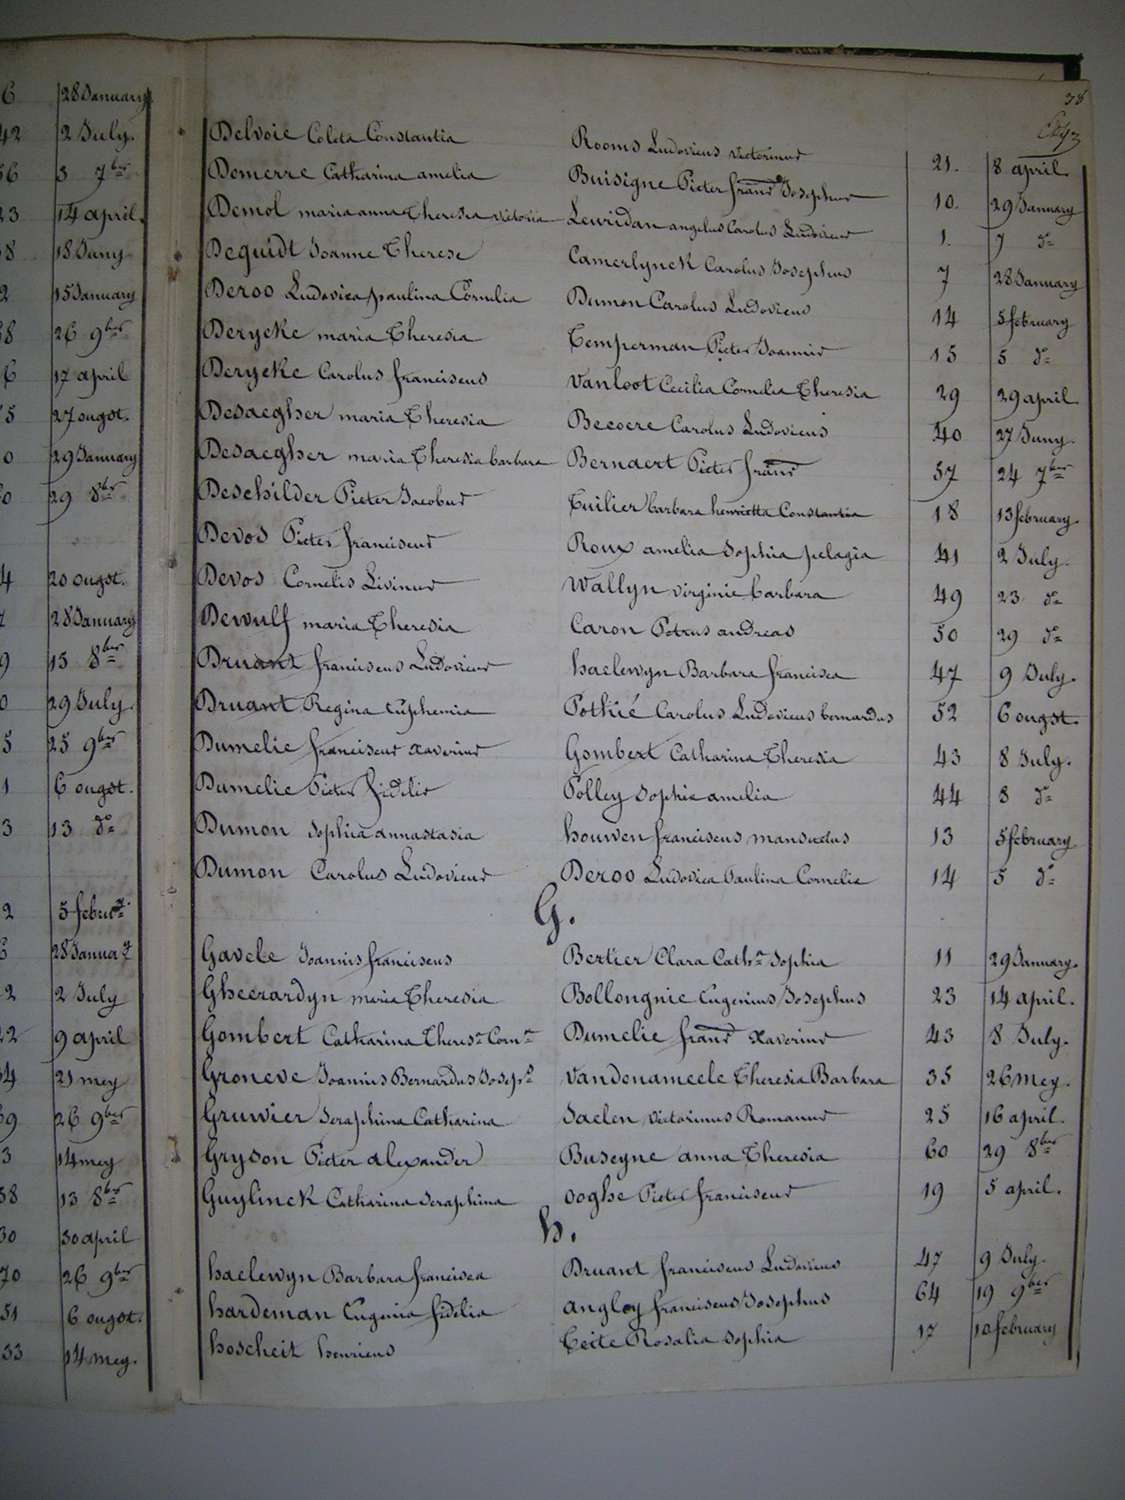 6 28 January
42 2 July.
56 3 7ber
23 14 april.
38 18 Juny
2 15 January
68 26 9ber
6 17 april
5 27 ougst.
0 29 January
0 29 8ber
4 20 ougst.
28 January
9 13 8ber
0 29 July.
5 25 9ber
1 6 ougst.
3 13 do
2 5 februy.
6 28 Januay
2 2 July
22 9 april
34 21 mey
69 26 9ber
3 14 mey
58 13 8ber
30 30 april
70 26 9ber
51 6 ougst.
33 14 mey.
38
Delvoie Coleta Constantia Rooms Ludovicus Victorinus 21. 8 april
Demerre Catharina amelia Buisigne Pieter frans Josephus 10. 29 January
Demol maria anna Theresia Victoria Lewidan angelus Carolus Ludovicus 1. 7 do
Dequidt Joanne Therese Camerlynck Carolus Josephus 7 28 January
Deroo Ludovica paulina Cornelia Dumon Carolus Ludovicus 14 5 february
Derycke maria Theresia Temperman Pieter Joannis 15 5 do
Derycke Carolus franciscus Vanloot Cecilia Cornelia Theresia 29 29 april
Desaegher maria Theresia Becoere Carolus Ludovicus 40 27 Juny.
Desaegher maria Theresia barbara Bernaert Pieter frans 57 24 7ber
Deschilder Pieter Jacobus Tuilier barbara henrietta Constantia 18 13 february.
Devos Pieter franciscus Roux amelia Sophia pelagia 41 2 July.
Devos Cornelis Livinus Wallyn Virginie barbara 49 23 do
Dewulf maria Theresia Caron Petrus andreas 50 29 do
Druant franciscus Ludovicus haelewyn Barbara francisca 47 9 July.
Druant Regina Euphemia Pothié Carolus Ludovicus bernardus 52 6 ougst.
Dumelie franciscus Xaverius Gombert Catharina Theresia 43 8 July.
Dumelie Pieter fidelis Polley Sophie amelia 44 8 do
Dumon Sophia annastasia houwen franciscus mansuetus 13 5 february
Dumon Carolus Ludovicus Deroo Ludovica Paulina Cornelia 14 5 do
G.
Gavele Joannis franciscus Bertier Clara Catha Sophia 11 29 January.
Gheerardyn maria Theresia Bollongnie Eugenius Josephus 23 14 april.
Gombert Catharina Theresa Corna Dumelie frans Xaverius 43 8 July.
Groneve Joannis Bernardus Josephs Vandenameele Theresia Barbara 35 26 mey.
Gruwier Seraphina Catharina Jaelen Victorinus Romanus 25 16 april.
Gryson Pieter alexander Buseyne anna Theresia 60 29 8ber
Guylinck Catharina Seraphina ooghe Pieter franciscus 19 5 april.
h.
haelewyn Barbara francisca Druant franciscus Ludovicus 47 9 July.
hardeman Eugenia fidelia angloy franciscus Josephus 64 19 9ber
hoscheit henricus Teite Rosalia Sophia 17 10 february